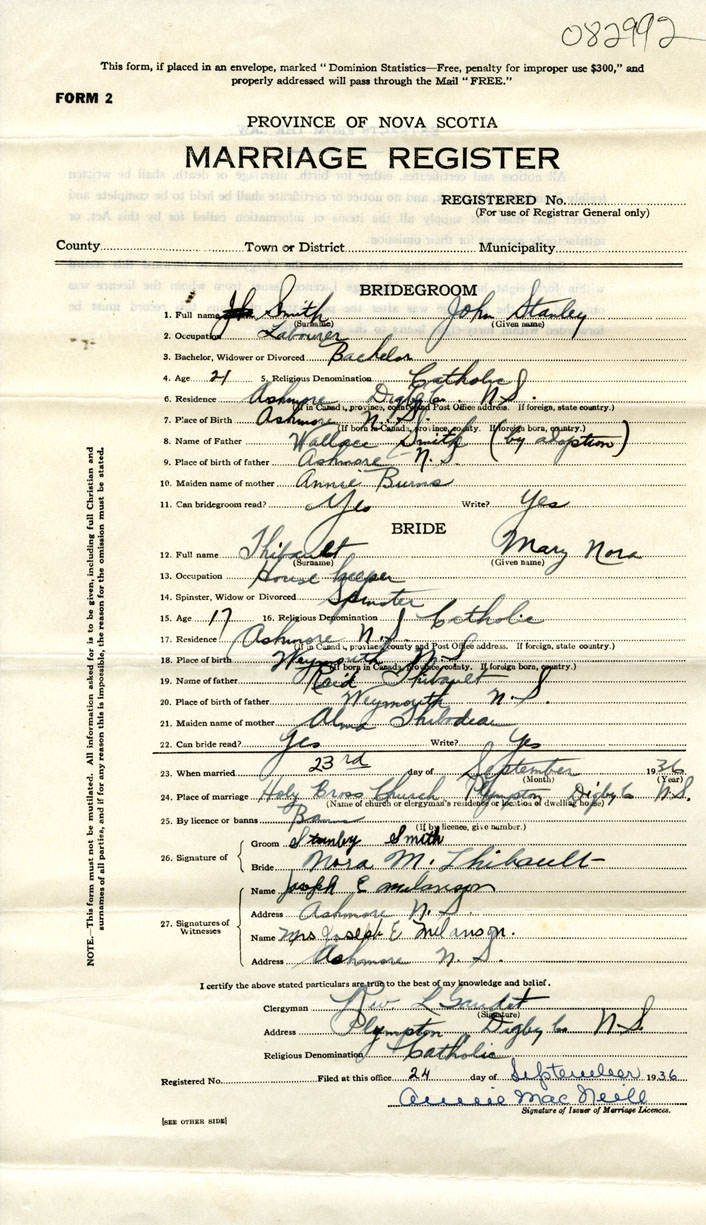 082992
This form, if placed in an envelope, marked "Dominion Statistics—Free, penalty for improper use $300," and
properly addressed will pass through the Mail "FREE."
FORM 2
PROVINCE OF NOVA SCOTIA
MARRIAGE REGISTER
REGISTERED No.
(For use of Registrar General only)
County Town or District Municipality
BRIDEGROOM
1. Full name Smith John Stanley
(Surname) (Given name)
2. Occupation Labourer
3. Bachelor, Widower or Divorced Bachelor
4. Age 21 5. Religious Denomination Catholic
6. Residence Ashmore Digby Co. N.S.
(If in Canada, province, county and Post Office address. If foreign, state country.)
7. Place of Birth Ashmore N.S.
(If born in Canada, province, county. If foreign born, country.)
8. Name of Father Wallace Smith (by adoption)
9. Place of birth of father Ashmore N.S.
10. Maiden name of mother Annie Burns
11. Can bridegroom read? Yes Write? Yes
BRIDE
12. Full name Thibault Mary Nora
(Surname) (Given name)
13. Occupation House keeper
14. Spinster, Widow or Divorced Spinster
15. Age 17 16. Religious Denomination Catholic
17. Residence Ashmore N.S.
(If in Canada, province, county and Post Office address. If foreign, state country.)
18. Place of birth Weymouth N.S.
(If born in Canada, province, county. If foreign born, country.)
19. Name of father Reid Thibault
20. Place of birth of father Weymouth N.S.
21. Maiden name of mother Alma Thibodeau
22. Can bride read? Yes Write? Yes
23. When married 23rd day of September 1936
(Month) (Year)
24. Place of marriage Holy Cross Church Plympton Digby Co N.S.
(Name of church or clergyman's residence or location of dwelling house)
25. By licence or banns Banns
(If by licence, give number.)
26. Signature of
Groom Stanley Smith
Bride Nora M. Thibault
27. Signatures of Witnesses
Name Joseph E Melanson
Address Ashmore N.S.
Name Mrs Joseph E Melanson.
Address Ashmore N.S.
I certify the above stated particulars are true to the best of my knowledge and belief.
Clergyman Rev L Gaudet
(Signature)
Address Plympton Digby Co N.S.
Religious Denomination Catholic
Registered No. Filed at this office 24 day of September 1936
Annie MacNeill
Signature of Issuer of Marriage Licences.
[SEE OTHER SIDE]
NOTE.—This form must not be mutilated. All information asked for is to be given, including full Christian and
surnames of all parties, and if for any reason this is impossible, the reason for the omission must be stated.